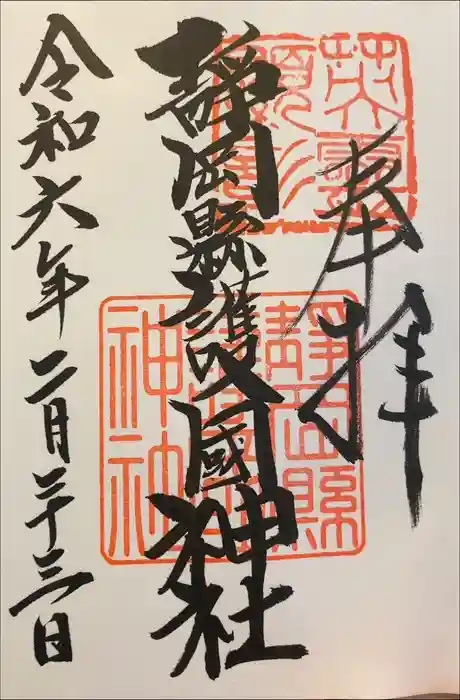 奉拝
靜岡縣護國神社
令和六年二月二十三日
靜岡縣護國神社